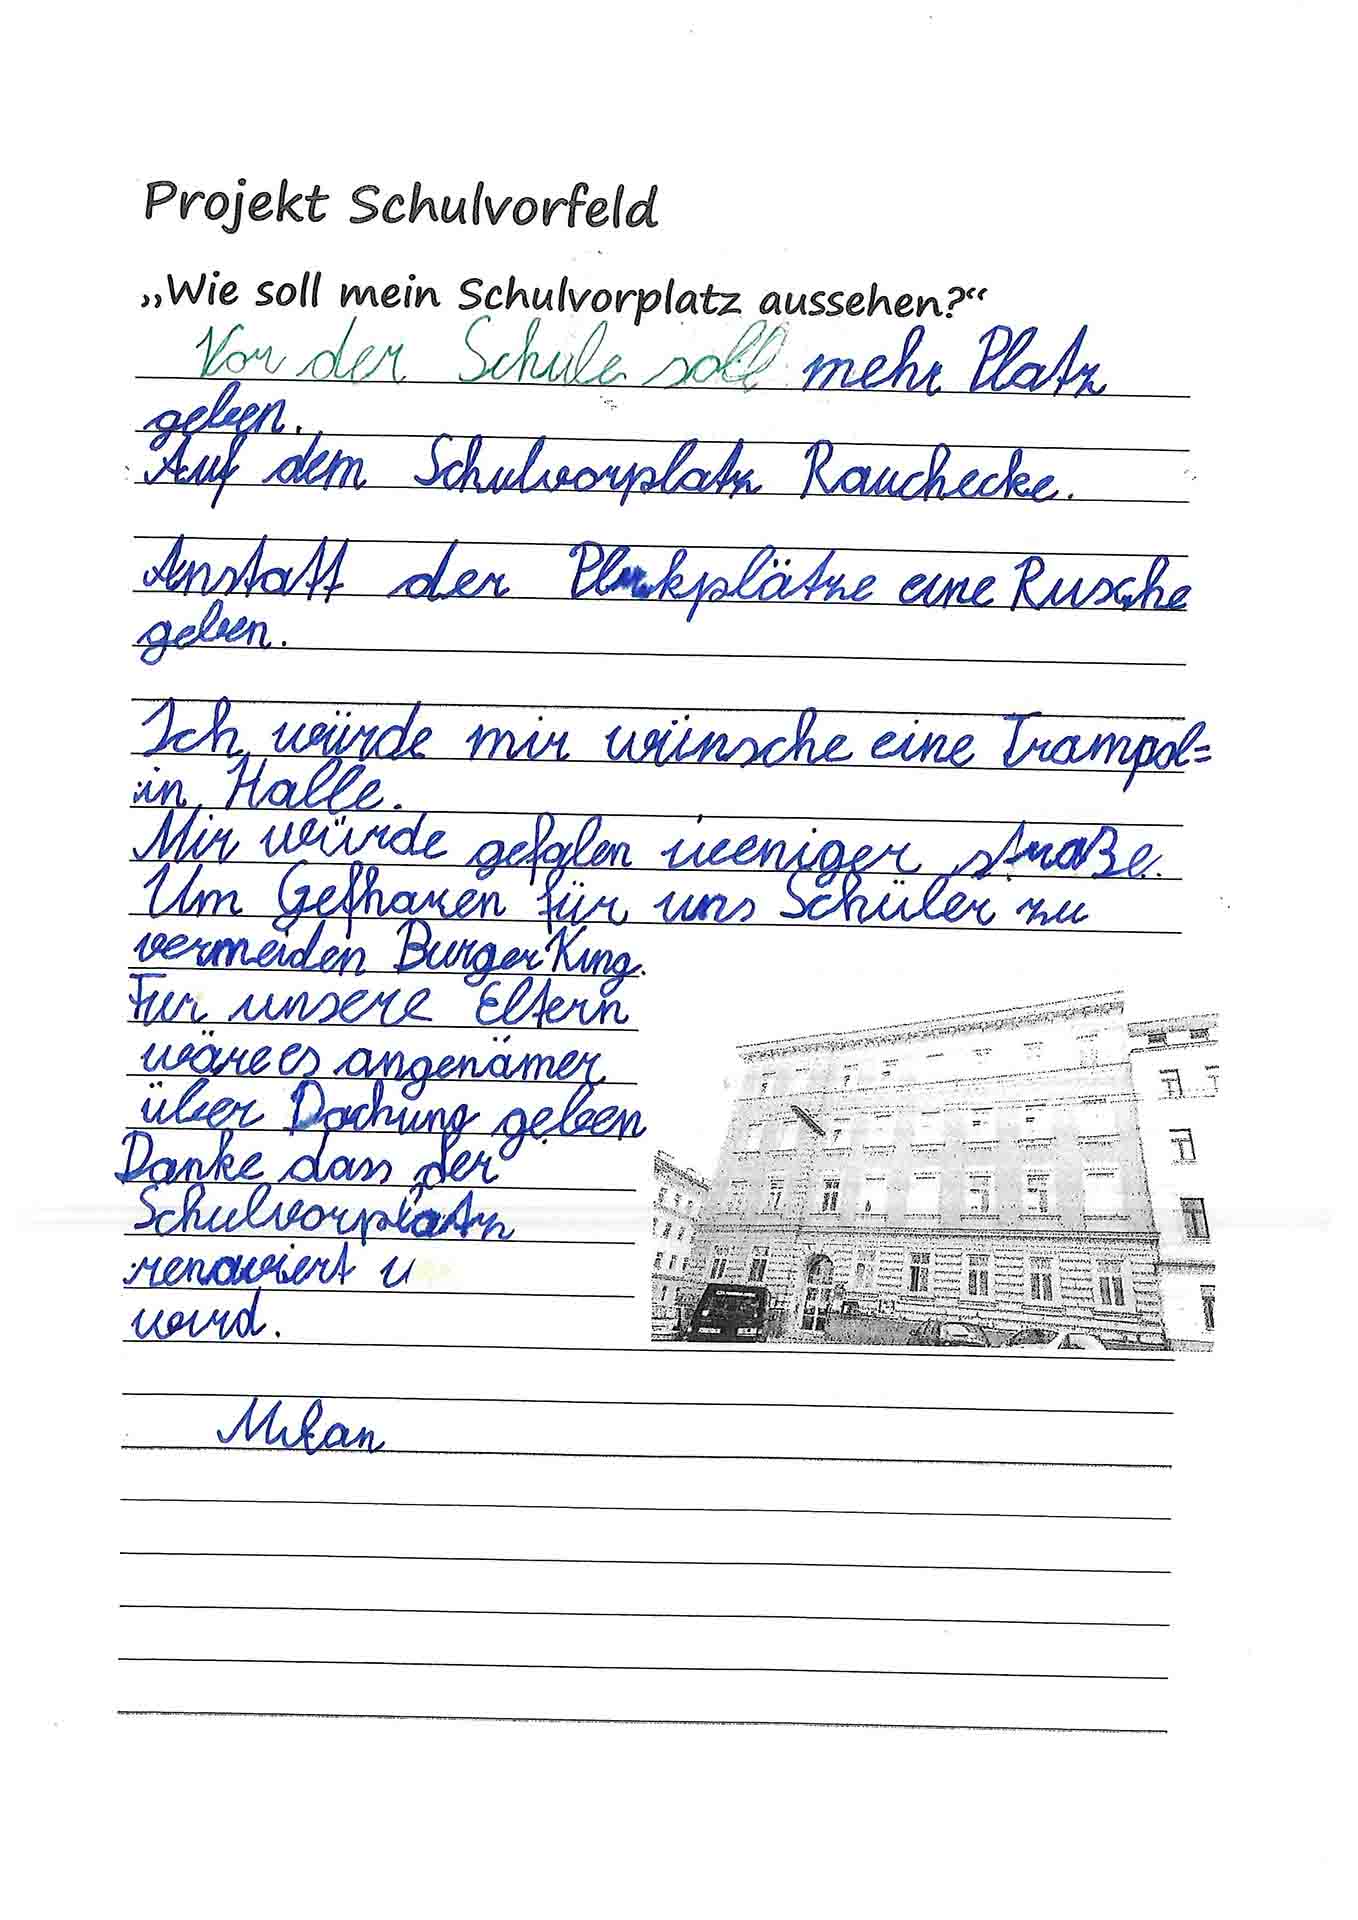 Projekt Schulvorfeld
„Wie soll mein Schulvorplatz aussehen?“
Vor der Schule soll mehr Platz
geben.
Auf dem Schulvorplatz Rauchecke.
Anstatt der Pakplätze eine Rusche
geben.
Ich würde mir wünsche eine Trampol=
in Halle.
Mir würde gefalen weniger straße.
Um Gefharen für uns Schüler zu
vermeiden Burger King.
Für unsere Eltern
wäre es angenämer
über Dachung geben
Danke dass der
Schulvorplatz
renoviert u
wird.
Milan